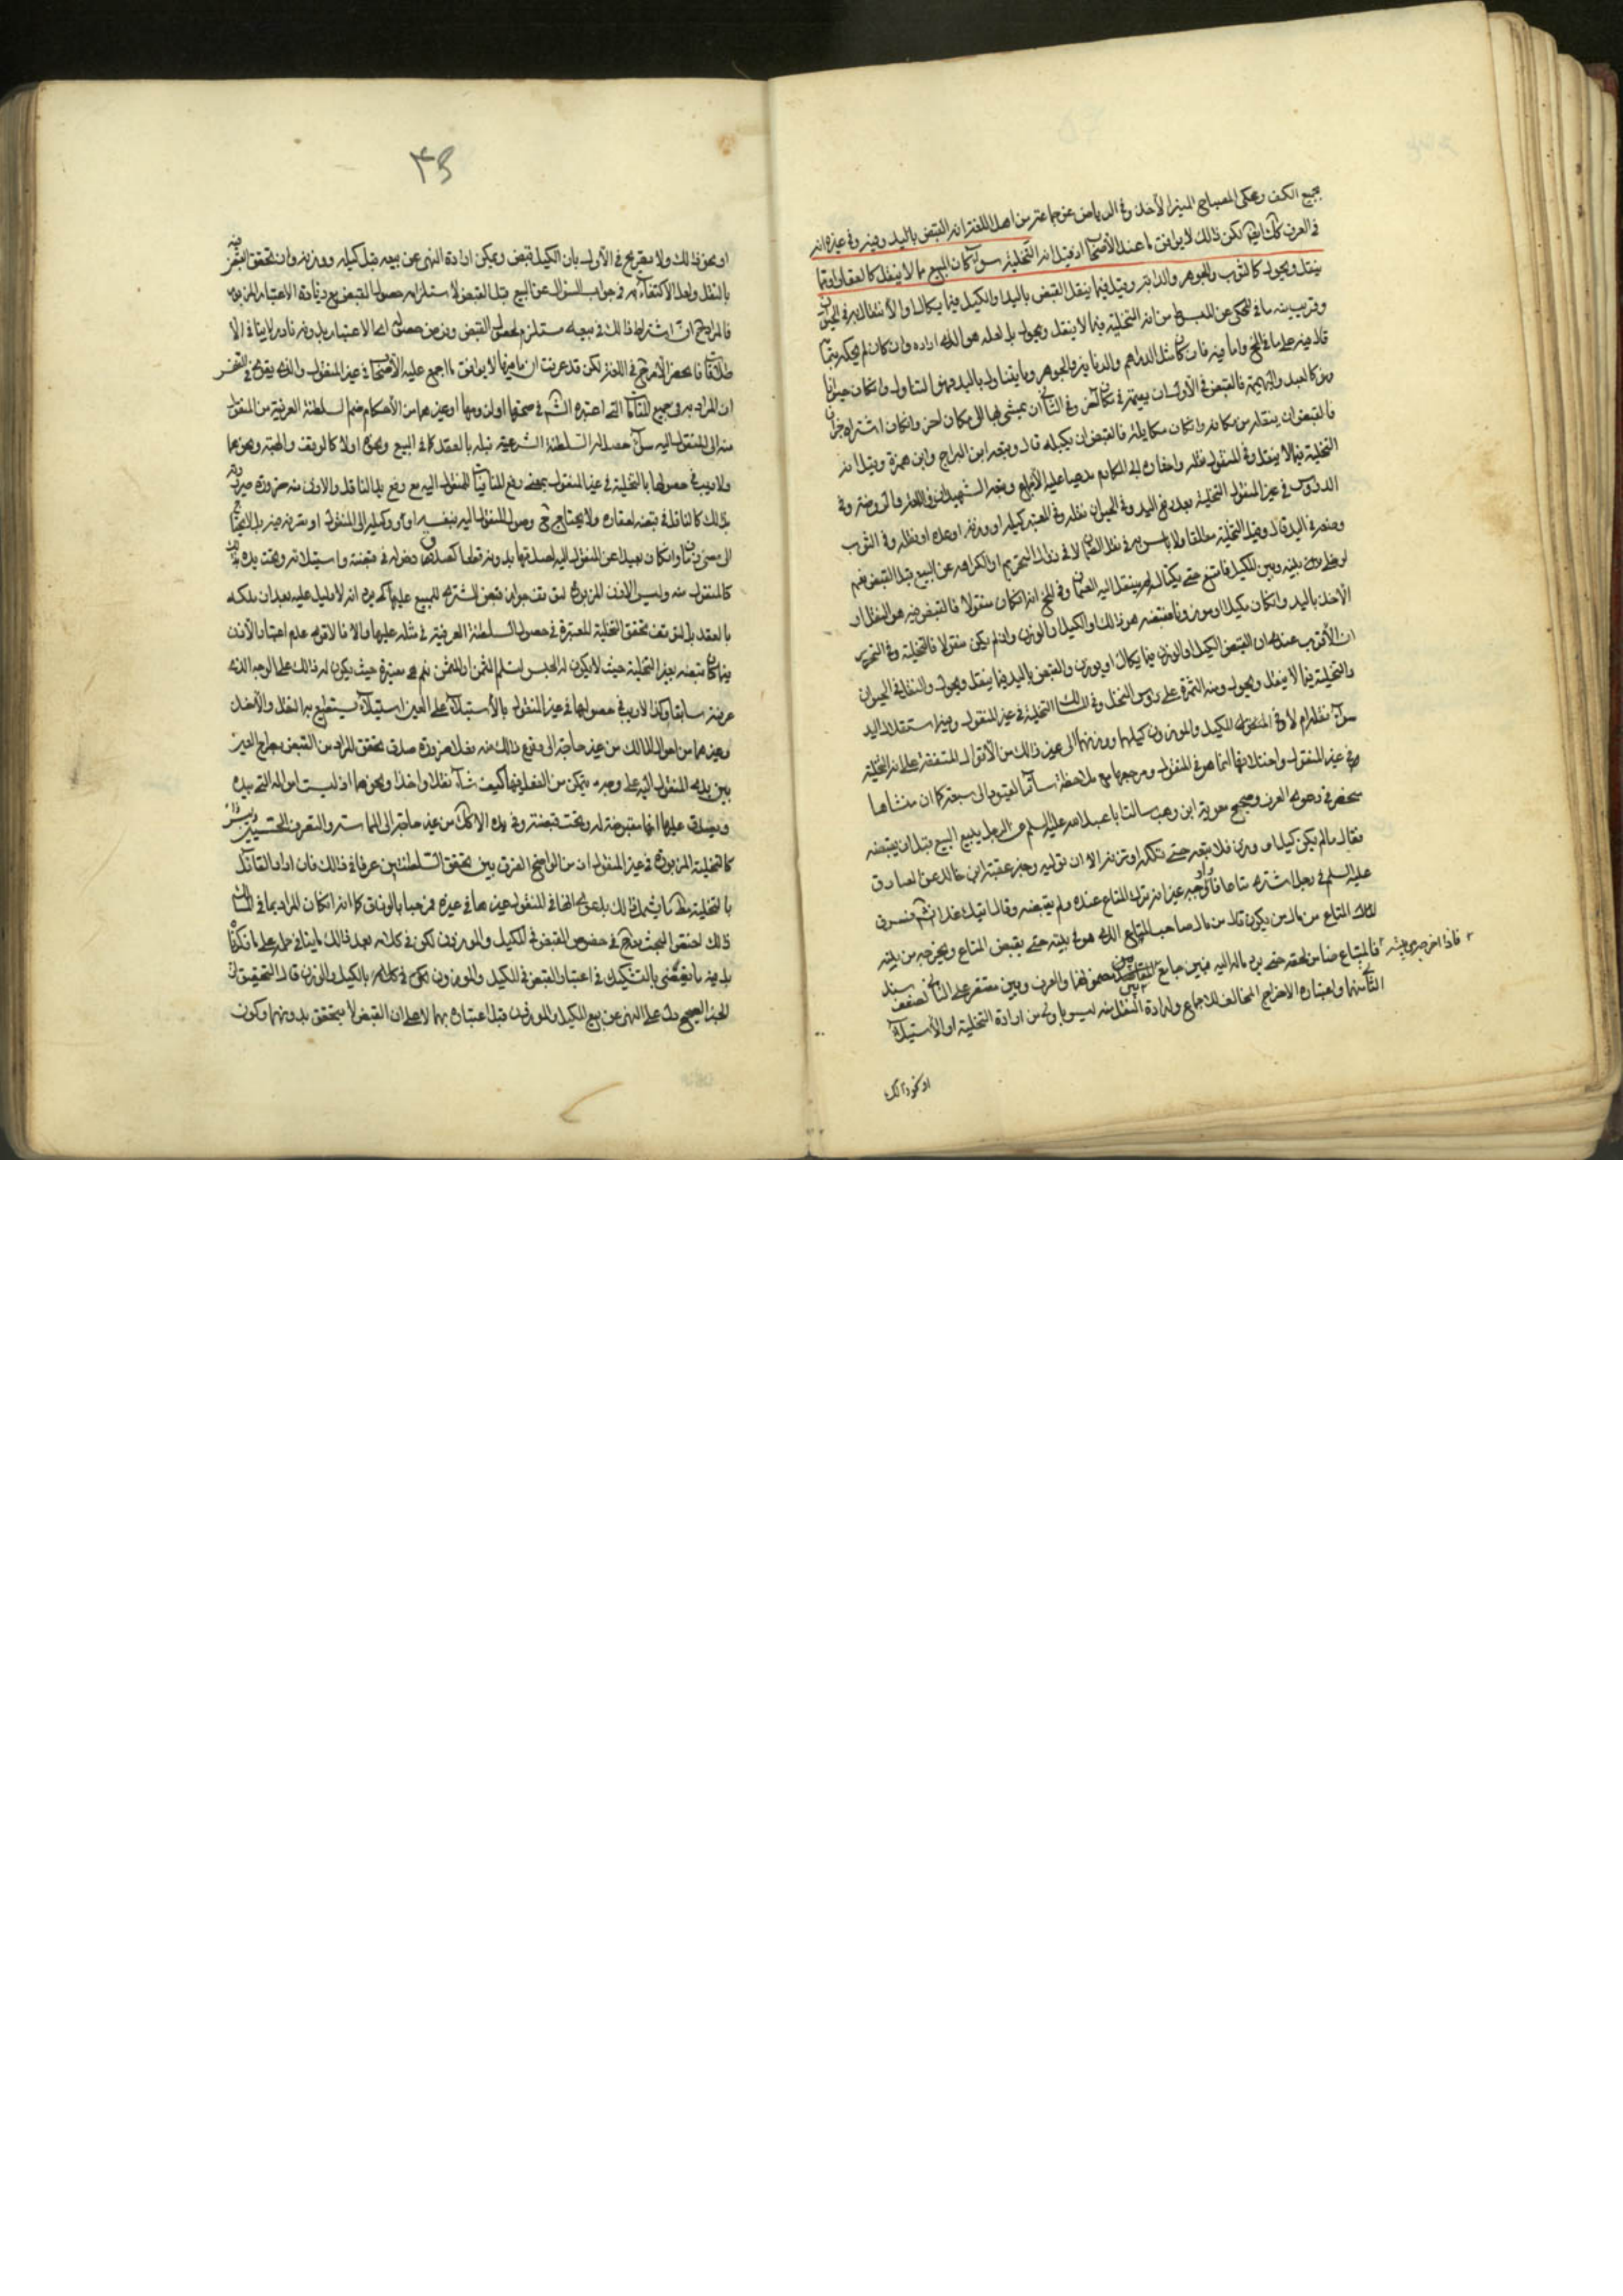 بجميع الكف وعكى المصباح الميز الأخذ وفى الرياض عن جماعة من اهل اللغة انه القبض باليد وفيه وفى غيره انه
فى العرف كك ايضا لكن ذلك لا يوافق ما عند الأصحاب اذ قيل انه التخلية سواء كان المبيع مما لا ينقل كالعقار او مما
ينقل ويحول كالثوب والجوهر والدابة وقيل فيما ينقل القبض باليد او الكيل فيما يكال او الأنتقال به فى الحيوان
وقريب منه ما فى المحكى عن المبسوط من انه التخلية فيما لا ينقل ويحول بل لعله هو الذى اراده وان كان لم يحكه بتمامه
مثل الدراهم والدنانير والجوهر وما يتناول باليد فهو التناول وان كان حيوانا
كالعبد والبهيمة فالقبض فى الأول ان يقيمه فى مكان آخر وفى الثانى ان يمشى بها الى مكان اخر وان كان اشتراه جزافا
فالقبض ان ينقله من مكانه وان كان مكايلة فالقبض ان يكيله قال وتبعه ابن البراج وابن حمزة وقيل انه
التخلية فيما لا ينقل وفى المنقول نقله واختاره فى المكارم مدعيا عليه الأجماع وتبعه الشهيدان فى اللمعة والروضة وفى
الدروس فى غير المنقول التخلية بعد رفع اليد وفى الحيوان نقله وفى المعتبر كيله او وزنه او عده او نقله وفى الثوب
وضعه فى اليد قال وقيل التخلية مطلقا ولا باس به فى نقل الضمان لا فى زوال التحريم او الكراهة عن البيع قبل القبض نعم
لو خلى بينه وبين المكيل فامتنع حتى يكتاله لم ينتقل اليه الضمان وفى انه ان كان منقولا فالقبض فيه هو النقل او
الأخذ باليد وان كان مكيلا او موزونا فقبضه هو ذلك او الكيل او الوزن وان لم يكن منقولا فالتخلية وفى التحرير
ان الأقرب عندى ان القبض الكيل او الوزن فيما يكال او يوزن والقبض باليد فيما ينقل ويحول والنقل فى الحيوان
والتخلية فيما لا ينقل ويحول ومنه الثمرة على رؤس النخل وفى المسالك التخلية فى غير المنقول وفيه استقلال اليد
سواء نقله ام لا وفى المكيل والموزون كيلهما ووزنهما الى غير ذلك من الأقوال المتفقة على انه التخلية
فى غير المنقول واختلافها انما هو فى المنقول ومرجعها مع ملاحظة سائر القيود الى سبعة كما ان منشاها
منحصر فى دعوى العرف وصحيح معوية ابن وهب سالت ابا عبد الله عليه السلم عن الرجل يبيع البيع قبل ان يقبضه
فقال ما لم يكن كيل او وزن فلا تبعه حتى تكيله او تزنه الا ان توليه وخبر عقبة ابن خالد عن الصادق
عليه السلم فى رجل اشترى متاعا من اخر واوجبه غير انه ترك المتاع عنده ولم يقبضه وقال اتيك غدا انشاء الله فسرق
المتاع من مال من يكون قال من مال صاحب المتاع الذى هو فى بيته حتى يقبض المتاع ويخرجه من بيته
فاذا اخرجه من بيته فالمبتاع ضامن لحقه حتى يرد ماله اليه فبين جامع بين مضمونهما والعرف وبين مقتصر على الثانى لضعف سند
الثانى منهما واعتباره الاخراج المخالف للاجماع وارادة النقل منه ليس باولى من ارادة التخلية او الأستيلاء
او نحو ذلك
۴۵
او نحو ذلك ولا تصريح فى الأول بان الكيل قبض ويمكن ارادة النهى عن بيعه قبل كيله ووزنه وان تحقق القبض فيه
بالنقل ولعل الاكتفاء به فى جواب السؤال عن البيع قبل القبض لاستلزامه حصول القبض مع زيادة الاعتبار المزبور
فالمراد ح ان اشتراط ذلك فى بيعه مستلزم لحصول القبض وفرض حصول الاعتبار بدونه نادر لا ينافى الا
طلاق فانحصر الأمر ح فى اللغة لكن قد عرفت ان ما فيها لا يوافق ما اجمع عليه الأصحاب فى غير المنقول والذى يقوى فى النفس
ان المراد به فى جميع المقامات التى اعتبره الشارع فى صحتها او لزومها او غيرهما من الأحكام ضم السلطنة العرفية من المنقول
منه الى المنقول اليه سواء حصل له السلطنة الشرعية قبله بالعقد كما فى البيع ونحوه او لا كالوقف والهبة ونحوهما
ولا ريب فى حصولها بالتخلية فى غير المنقول بمعنى رفع المنافيات للمنقول اليه مع رفع يد الناقل والاذن منه
بذلك كالناقل فى قبضه لعقاره ولا يحتاج ح الى وصول المنقول اليه بنفسه او وكيله الى المنقول او تصرفه فيه بل لا يحتاج
الى مضى زمان وان كان بعيدا عن المنقول اليه لصدقها بدونه قطعا كصدق دخوله فى قبضته واستيلائه وتحت يده
كالمنقول منه وليس الاذن المزبور
بالعقد بل لتوقف تحقق التخلية المعتبرة فى حصول السلطنة العرفية فى مثله عليها والا فالاقوى عدم اعتبار الأذن
حيث لا يكون له الحبس لتسلم الثمن او المثمن نعم هى معتبرة حيث يكون له ذلك على الوجه الذى
عرفته سابقا وكذا لا ريب فى حصولها فى غير المنقول بالأستيلاء على العين استيلاء يستطيع به النقل والأخذ
وغيرهما من احوال المالك من غير حاجة الى وقوع ذلك منه فعلا ضرورة صدق تحقق المراد من القبض بطرح العين
بين يدى المنقول اليه على وجه يتمكن من الفعل فيها كيف شاء نقلا واخذا ونحوهما اذ ليست امواله التى بيده
ويصدق عليها انها مقبوضة له وتحت قبضته وفى يده الا كك من غير حاجة الى المماسة والتصرف الحسيين
كالتخلية المزبورة فى غير المنقول اذ من الواضح الفرق بين تحقق السلطنتين عرفا فى ذلك فان اراد القائل
بالتخلية مط ما يشمل ذلك بدعوى انها فى المنقول غيرها فى غيره فمرحبا بالوفاق كما انه ان كان المراد بما فى
ذلك اختص البحث معه ح فى خصوص القبض فى المكيل والموزون لكن فى كلامه بعد ذلك ما ينافى حمله على ما ذكرنا
بل فيه ما يقضى بالتفكيك فى اعتبار القبض فى المكيل والموزون بالكيل والوزن قال التحقيق ان
الخبر الصحيح دل على النهى عن بيع المكيل والموزون قبل اعتباره بهما لا على ان القبض لا يتحقق بدونهما وكون